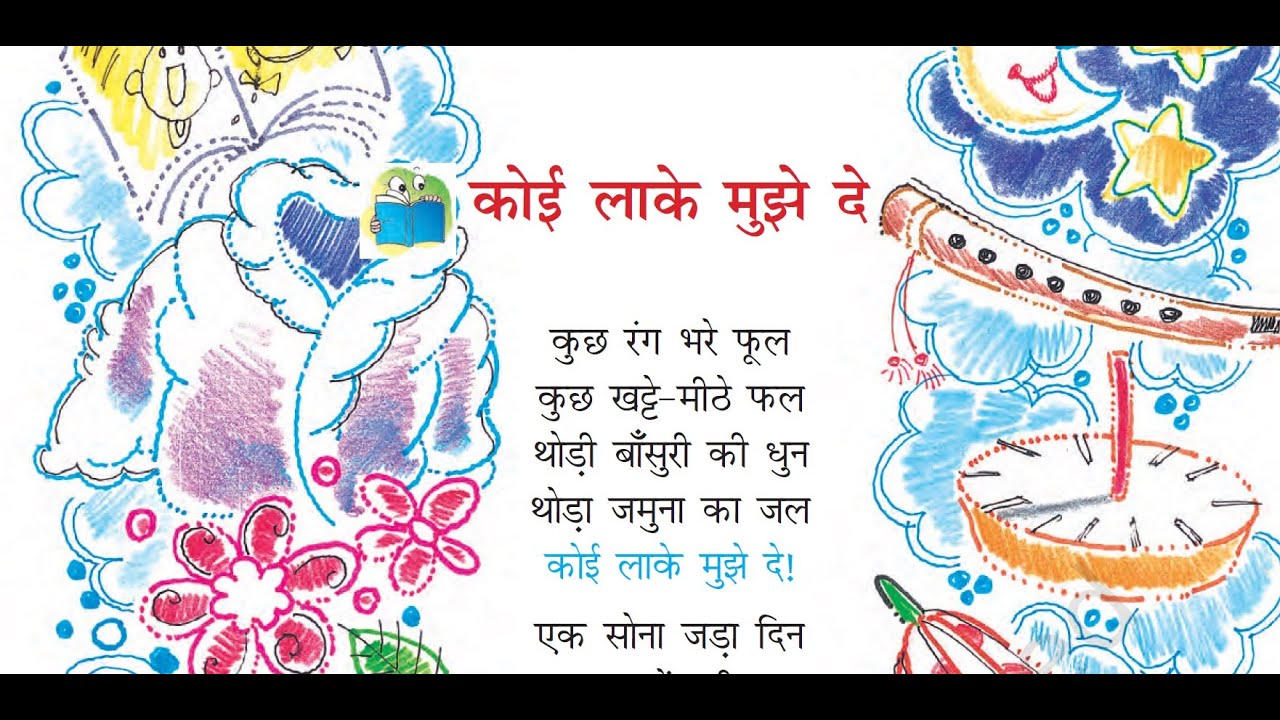 कोई लाके मुझे दे
कुछ रंग भरे फूल
कुछ खट्टे-मीठे फल
थोड़ी बाँसुरी की धुन
थोड़ा जमुना का जल
कोई लाके मुझे दे!
एक सोना जड़ा दिन